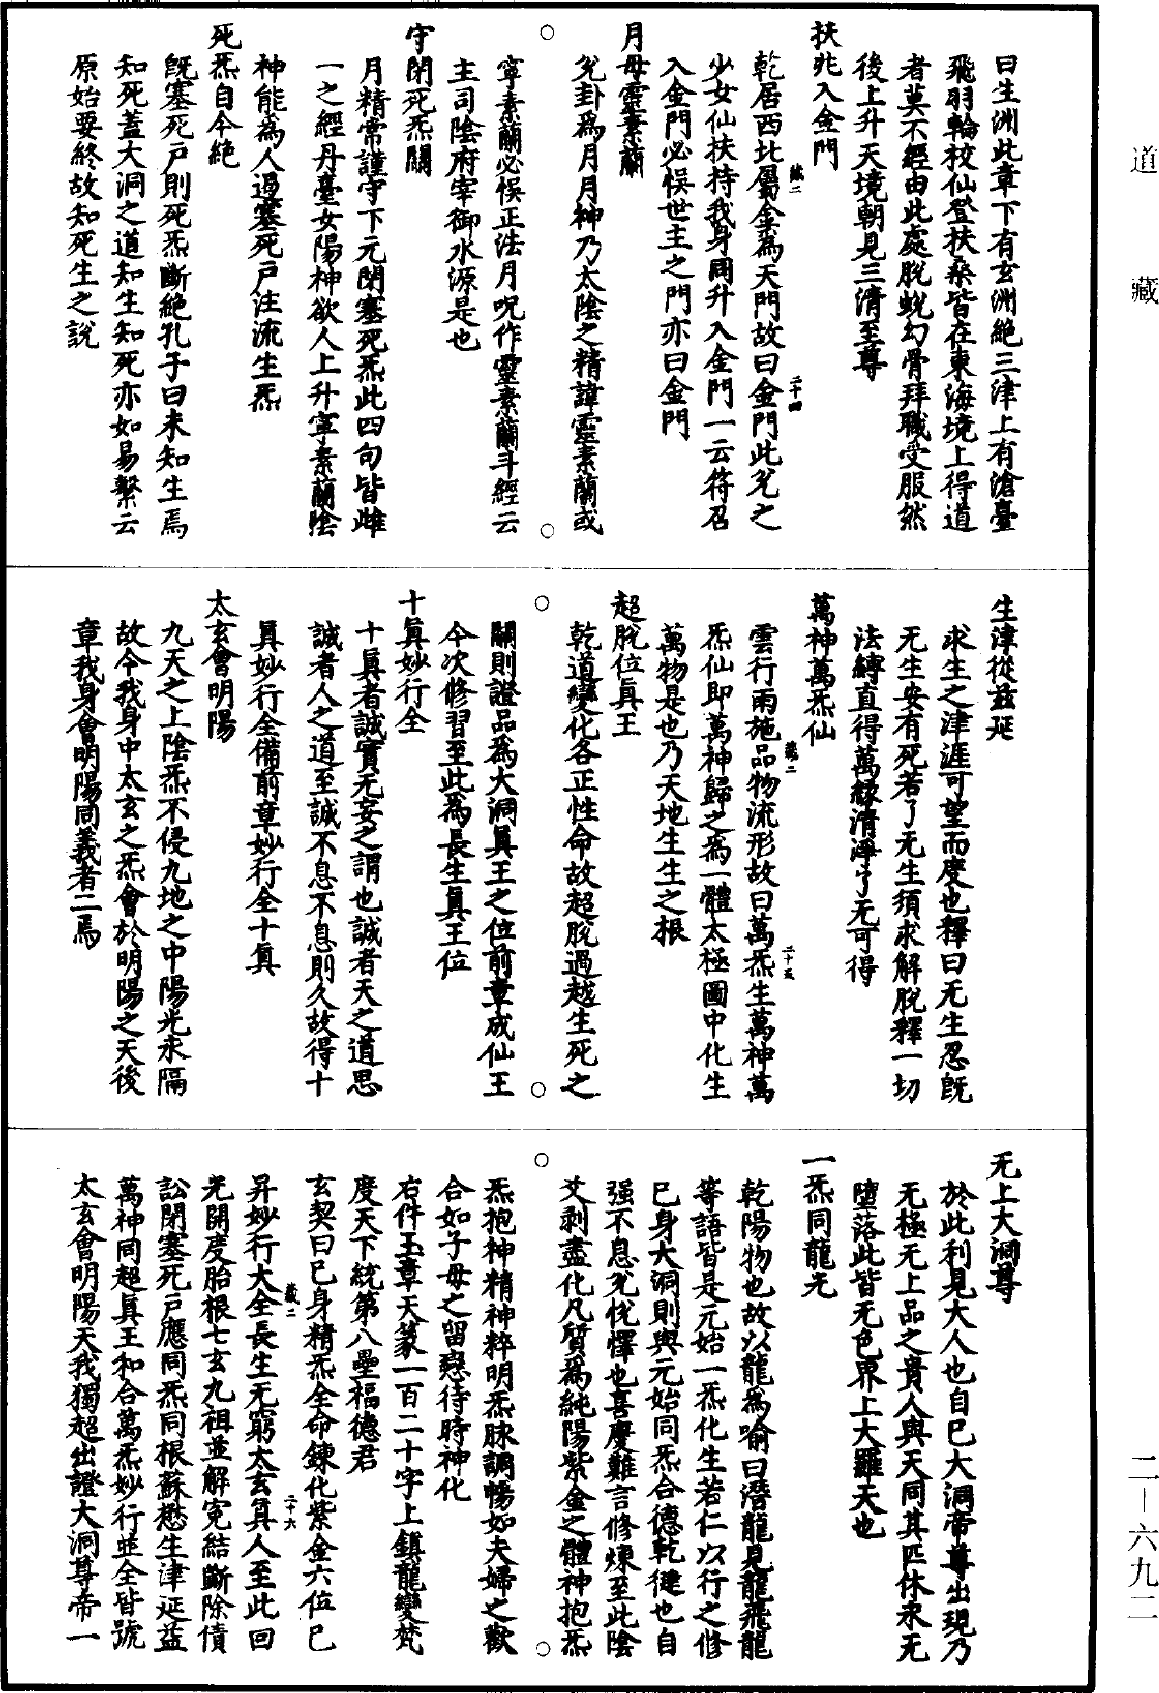 道藏
二—六九二
曰生洲此章下有玄洲絕三津上有滄臺
飛羽輪校仙登扶桑皆在東海境上得道
者莫不經由此處脫蛻幻骨拜職受服然
後上升天境朝見三清至尊
扶兆入金門
乾居西北屬金為天門故曰金門此兊之
少女仙扶持我身同升入金門一云符召
入金門必悞世主之門亦曰金門
月母靈素蘭
兊卦為月月神乃太陰之精諱靈素蘭或
寜素蘭必悞正法月呪作靈素蘭斗經云
主司陰府宰御水源是也
守閉死炁關
月精常謹守下元閉塞死炁此四句皆雌
一之經丹臺女陽神欲人上升寜素蘭陰
神能為人過塞死戶注流生炁
死炁自今絕
旣塞死戶則死炁斷絕孔子曰未知生焉
知死蓋大洞之道知生知死亦如易繫云
原始要終故知死生之說
生津從茲延
求生之津涯可望而度也釋曰无生忍旣
无生安有死若了无生須求解脫釋一切
法縛直得萬緣清淨了无可得
萬神萬炁仙
雲行雨施品物流形故曰萬炁生萬神萬
炁仙即萬神歸之為一體太極圖中化生
萬物是也乃天地生生之根
超脫位眞王
乾道變化各正性命故超脫過越生死之
關則證品為大洞眞王之位前章成仙王
今次修習至此為長生眞王位
十眞妙行全
十眞者誠實无妄之謂也誠者天之道思
誠者人之道至誠不息不息則久故得十
眞妙行全備前章妙行全十眞
太玄會明陽
九天之上陰炁不侵九地之中陽光未隔
故今我身中太玄之炁會於明陽之天後
章我身會明陽同義者二焉
无上大洞尊
於此利見大人也自巳大洞帝尊出現乃
无極无上品之貴人與天同其匹休永无
墮落此皆无色界上大羅天也
一炁同龍光
乾陽物也故以龍為喻曰潛龍見龍飛龍
等語皆是元始一炁化生若仁以行之修
巳身大洞則與元始同炁合德乾健也自
强不息兊悅懌也喜慶難言修煉至此陰
爻剥盡化凡質為純陽紫金之體神抱炁
炁抱神精神粹明炁脉調暢如夫婦之歡
合如子母之留戀待時神化
右件玉章天篆一百二十字上鎮龍變梵
度天下統第八壘福德君
玄契曰巳身精炁全命鍊化紫金六位巳
昇妙行大全長生无窮太玄眞人至此回
光開度胎根七玄九祖並解寃結斷除債
訟閉塞死戶應同炁同根蘇懋生津延益
萬神同超眞王和合萬炁妙行並全皆號
太玄會明陽天我獨超出證大洞尊帝一
藏二
二十四
藏二
二十五
藏二
二十六